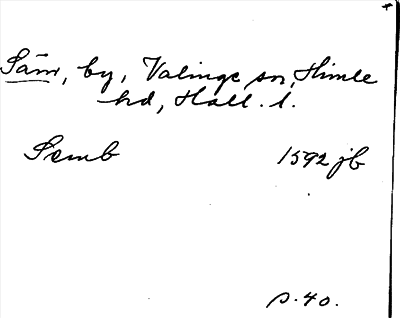 Säm, by, Valinge sn, Himle
hd, Hall. l.
Semb 1592 jb
s. 40.